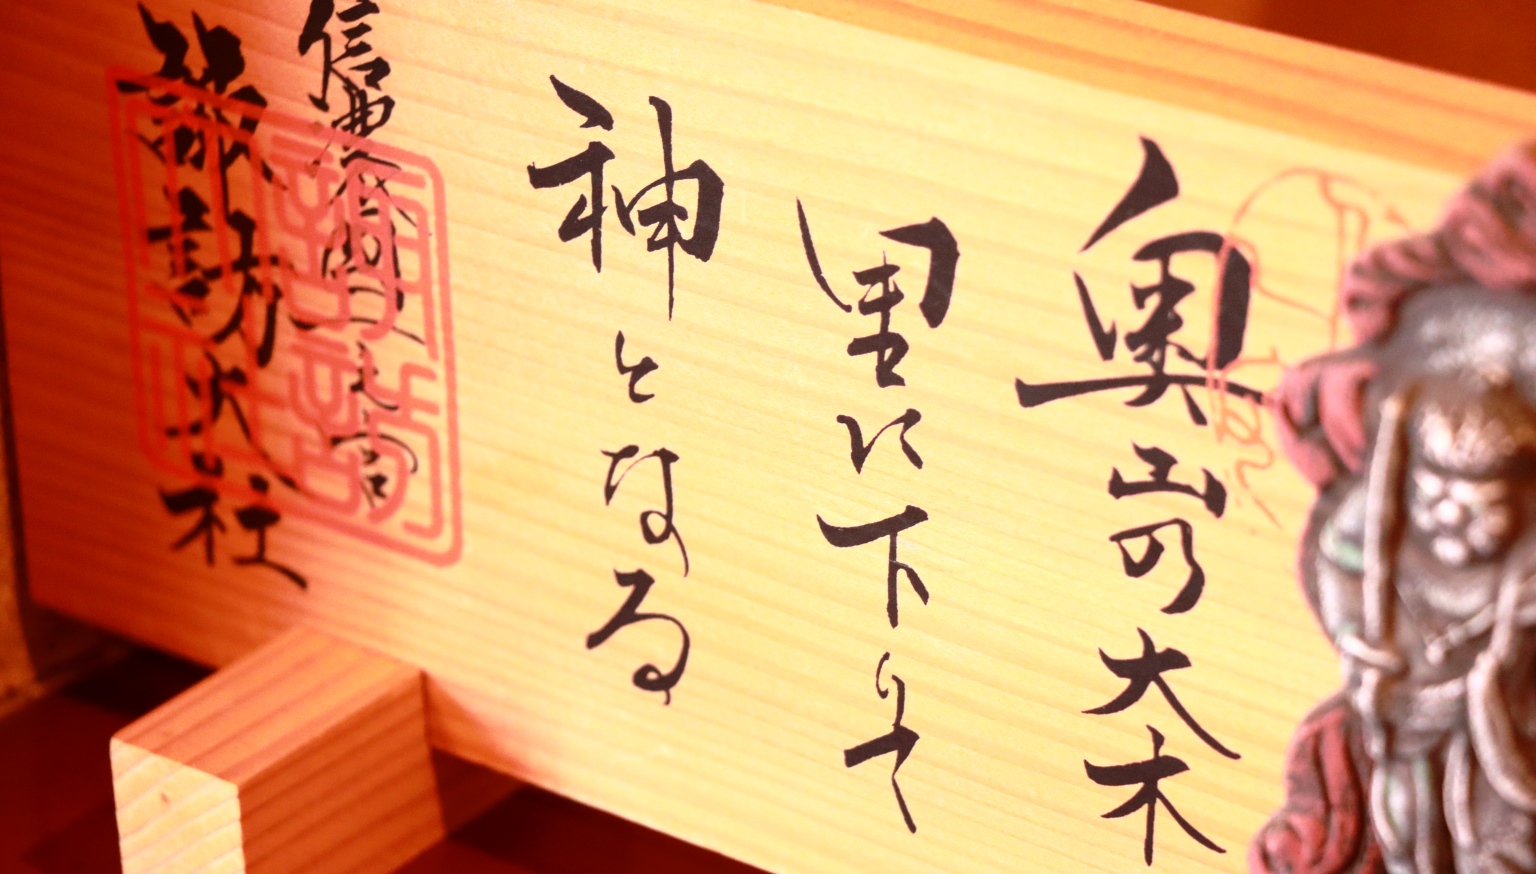 奥山の大木
里に下りて
神となる
信濃國一之宮
諏訪大社